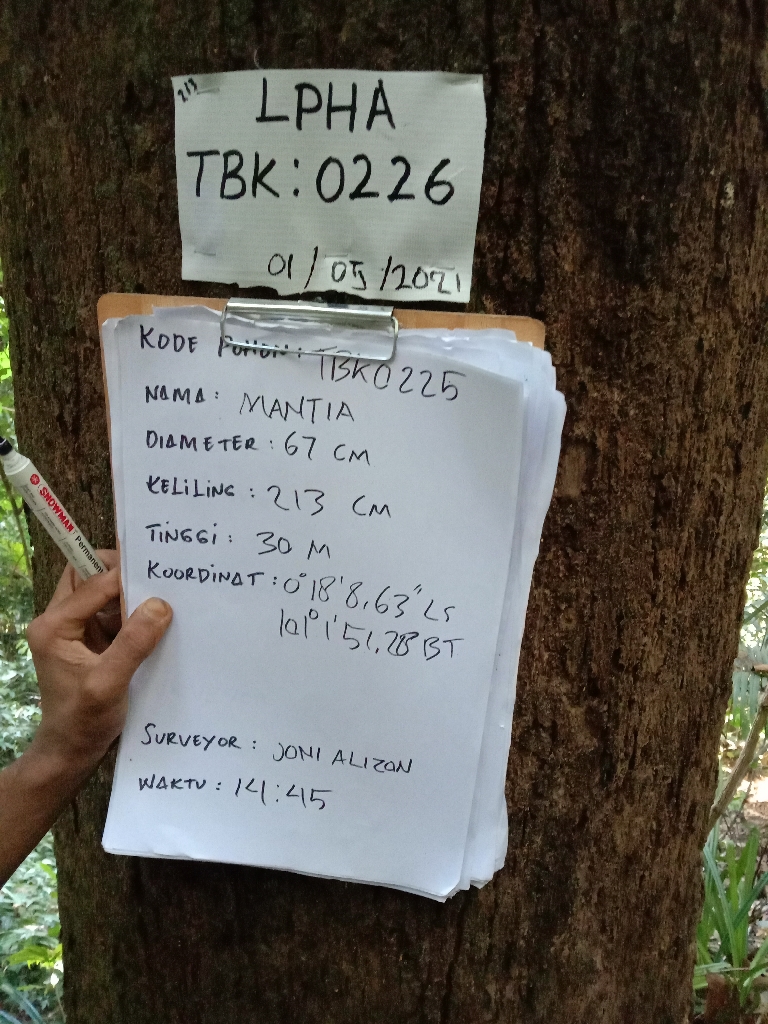 213
LPHA
TBK:0226
01/05/2021
KODE POHON: TBK0225
NAMA: MANTIA
DIAMETER: 67 CM
KELILING: 213 CM
TINGGI: 30 M
KOORDINAT: 0°18'8,63" LS
101°1'51,28 BT
SURVEYOR: JONI ALIZON
WAKTU: 14:45
SNOWMAN Permanent